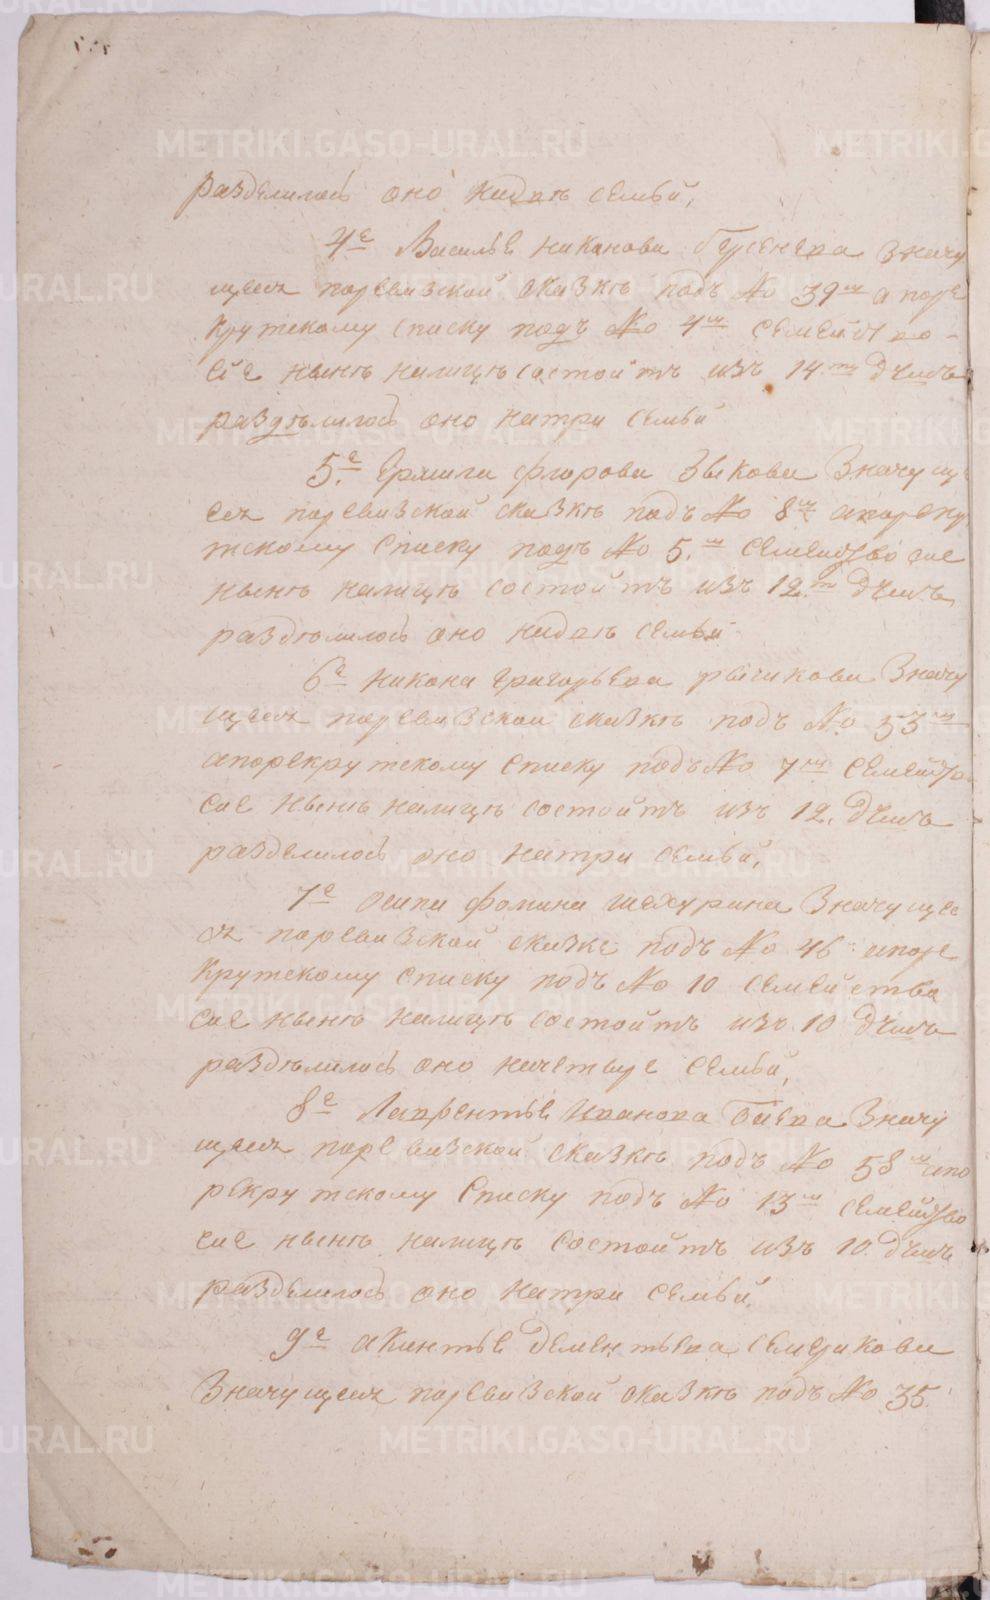 разделилось оно надвѣ семьи,
4е Василья Никонова Гусенева значу
щееся поревизской сказкѣ подъ № 39м апоре
крутскому списку подъ № 4м семейство
сіе нынѣ налицѣ состоитъ изъ 14ти душъ
раздѣлилось оно натри семьи
5е. Ермила Флорова Зыкова значуще
еся поревизской сказкѣ подъ № 8м апорекру
тскому списку подъ № 5.м семейство сие
нынѣ налицѣ состоитъ изъ 12.ти душъ
раздѣлилось оно надвѣ семьи
6е Никона Григорьева Рычкова значу
щееся поревизской сказкѣ подъ № 53м
апорекрутскому списку подъ № 7м семейство
сие нынѣ налицѣ состоитъ изъ 12. душъ
разделилось оно натри семьи,
7е Осипа Фомина Шехурина значущее
ся поревизской сказке подъ № 46 апоре
крутскому списку подъ № 10 семейство
сие нынѣ налицѣ состоитъ изо 10 душъ
раздѣлилось оно начетыре семьи,
8е Лаврентья Иванова Баева значу
щееся поревизской сказкѣ подъ № 58м апо
рекрутскому списку подъ № 13м семейство
сие нынѣ налицѣ состоитъ изъ 10. душъ
разделилось оно натри семьи,
9е Акинтья Дементьева
значущееся поревизской сказкѣ подъ № 35.
METRIKI.GASO-URAL.RU